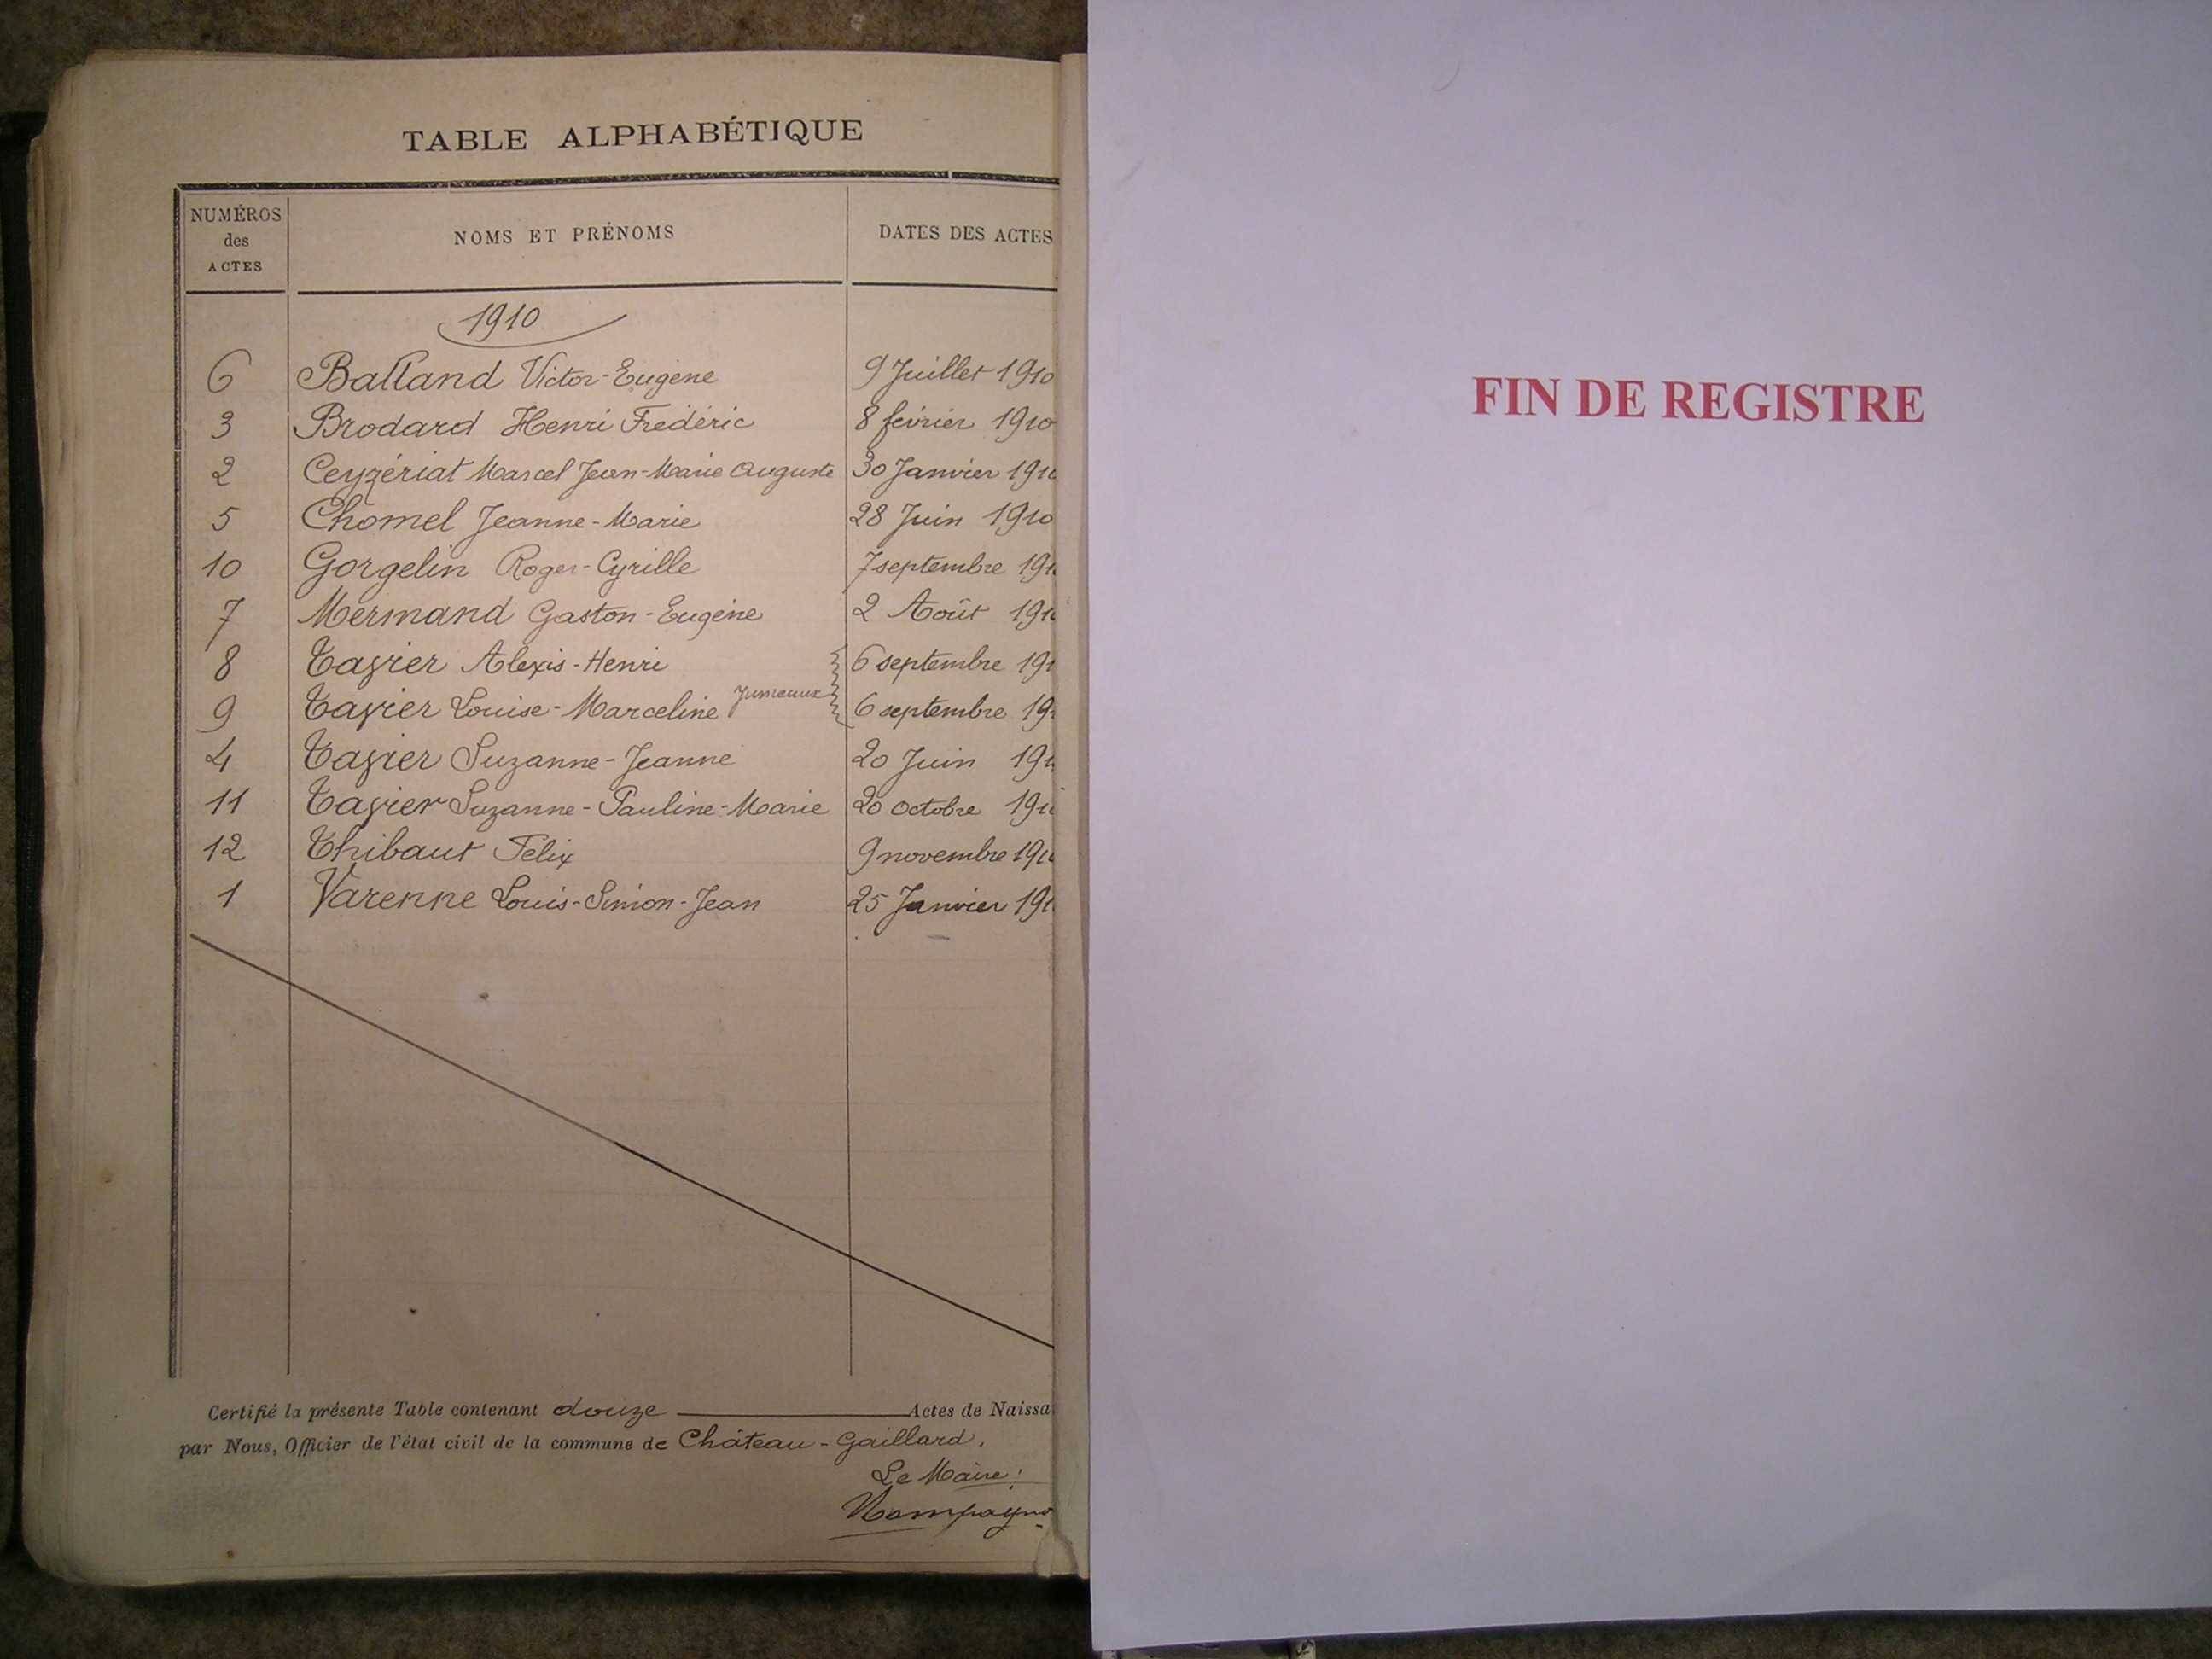 TABLE ALPHABÉTIQUE
NUMÉROS des ACTES NOMS ET PRÉNOMS DATES DES ACTES
1910
6 Balland Victor-Eugène 9 Juillet 1910
3 Brodard Henri Frédéric 8 février 1910
2 Ceyzériat Marcel Jean-Marie Auguste 30 Janvier 1910
5 Chomel Jeanne-Marie 28 Juin 1910
10 Gorgelin Roger-Cyrille 7 septembre 191
7 Mermand Gaston-Eugène 2 Août 191
8 Tavier Alexis-Henri 6 septembre 191
9 Tavier Louise-Marceline Jumeaux 6 septembre 19
4 Tavier Suzanne-Jeanne 20 Juin 191
11 Tavier Suzanne-Pauline-Marie 20 octobre 191
12 Thibaut Félix 9 novembre 191
1 Varenne Louis-Simon-Jean 25 Janvier 191
Certifié la présente Table contenant douze Actes de Naissa
par Nous, Officier de l'état civil de la commune de Château-Gaillard.
Le Maire:
FIN DE REGISTRE